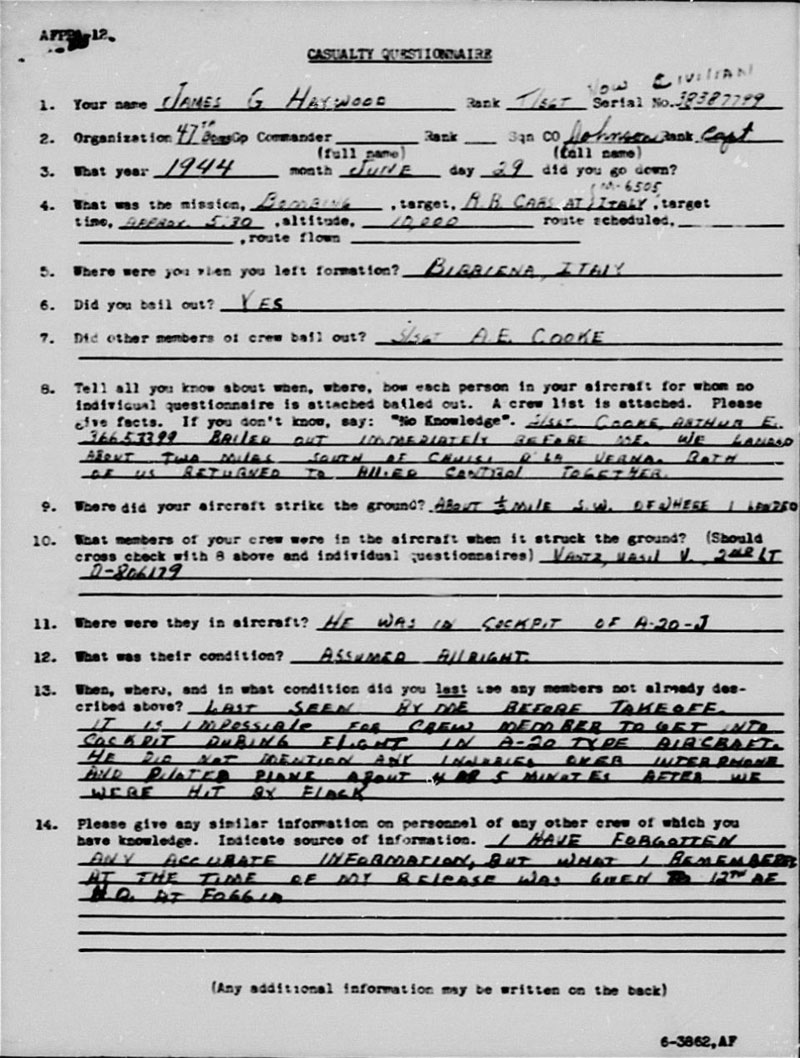 AFPPA-12
CASUALTY QUESTIONNAIRE
NOW CIVILIAN
1. Your name JAMES G HAYWOOD Rank T/SGT Serial No. 38387799
2. Organization 47TH Bomb Gp Commander Rank Sqn CO Johnson Rank Capt
(full name) (full name)
3. What year 1944 month JUNE day 29 did you go down?
M-6505
4. What was the mission, BOMBING, target, R.R. CARS AT, ITALY, target
time, APPROX. 5:30, altitude, 10,000 route scheduled,
, route flown
5. Where were you when you left formation? BIBBIENA, ITALY
6. Did you bail out? YES
7. Did other members of crew bail out? S/SGT A.E. COOKE
8. Tell all you know about when, where, how each person in your aircraft for whom no
individual questionnaire is attached bailed out. A crew list is attached. Please
give facts. If you don't know, say: "No Knowledge". S/SGT COOKE, ARTHUR E.
36653399 BAILED OUT IMMEDIATELY BEFORE ME. WE LANDED
ABOUT TWO MILES SOUTH OF CHUISI D'LA VERNA. BOTH
OF US RETURNED TO ALLIED CONTROL TOGETHER.
9. Where did your aircraft strike the ground? ABOUT ½ MILE S.W. OF WHERE I LANDED
10. What members of your crew were in the aircraft when it struck the ground? (Should
cross check with 8 above and individual questionnaires) VANTZ, VASIL V., 2ND LT
O-806179
11. Where were they in aircraft? HE WAS IN COCKPIT OF A-20-J
12. What was their condition? ASSUMED ALLRIGHT.
13. When, where, and in what condition did you last see any members not already des-
cribed above? LAST SEEN BY ME BEFORE TAKEOFF.
IT IS IMPOSSIBLE FOR CREW MEMBER TO GET INTO
COCKPIT DURING FLIGHT IN A-20 TYPE AIRCRAFT.
HE DID NOT MENTION ANY INJURIES OVER INTERPHONE
AND PILOTED PLANE ABOUT 4 OR 5 MINUTES AFTER WE
WERE HIT BY FLACK
14. Please give any similar information on personnel of any other crew of which you
have knowledge. Indicate source of information. I HAVE FORGOTTEN
ANY ACCURATE INFORMATION, BUT WHAT I REMEMBERED
AT THE TIME OF MY RELEASE WAS GIVEN TO 12TH AF
H.Q. AT FOGGIA
(Any additional information may be written on the back)
6-3862, AF